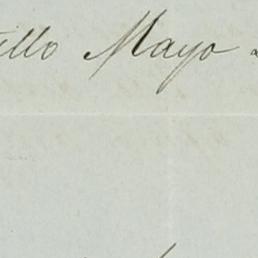 illo Mayo